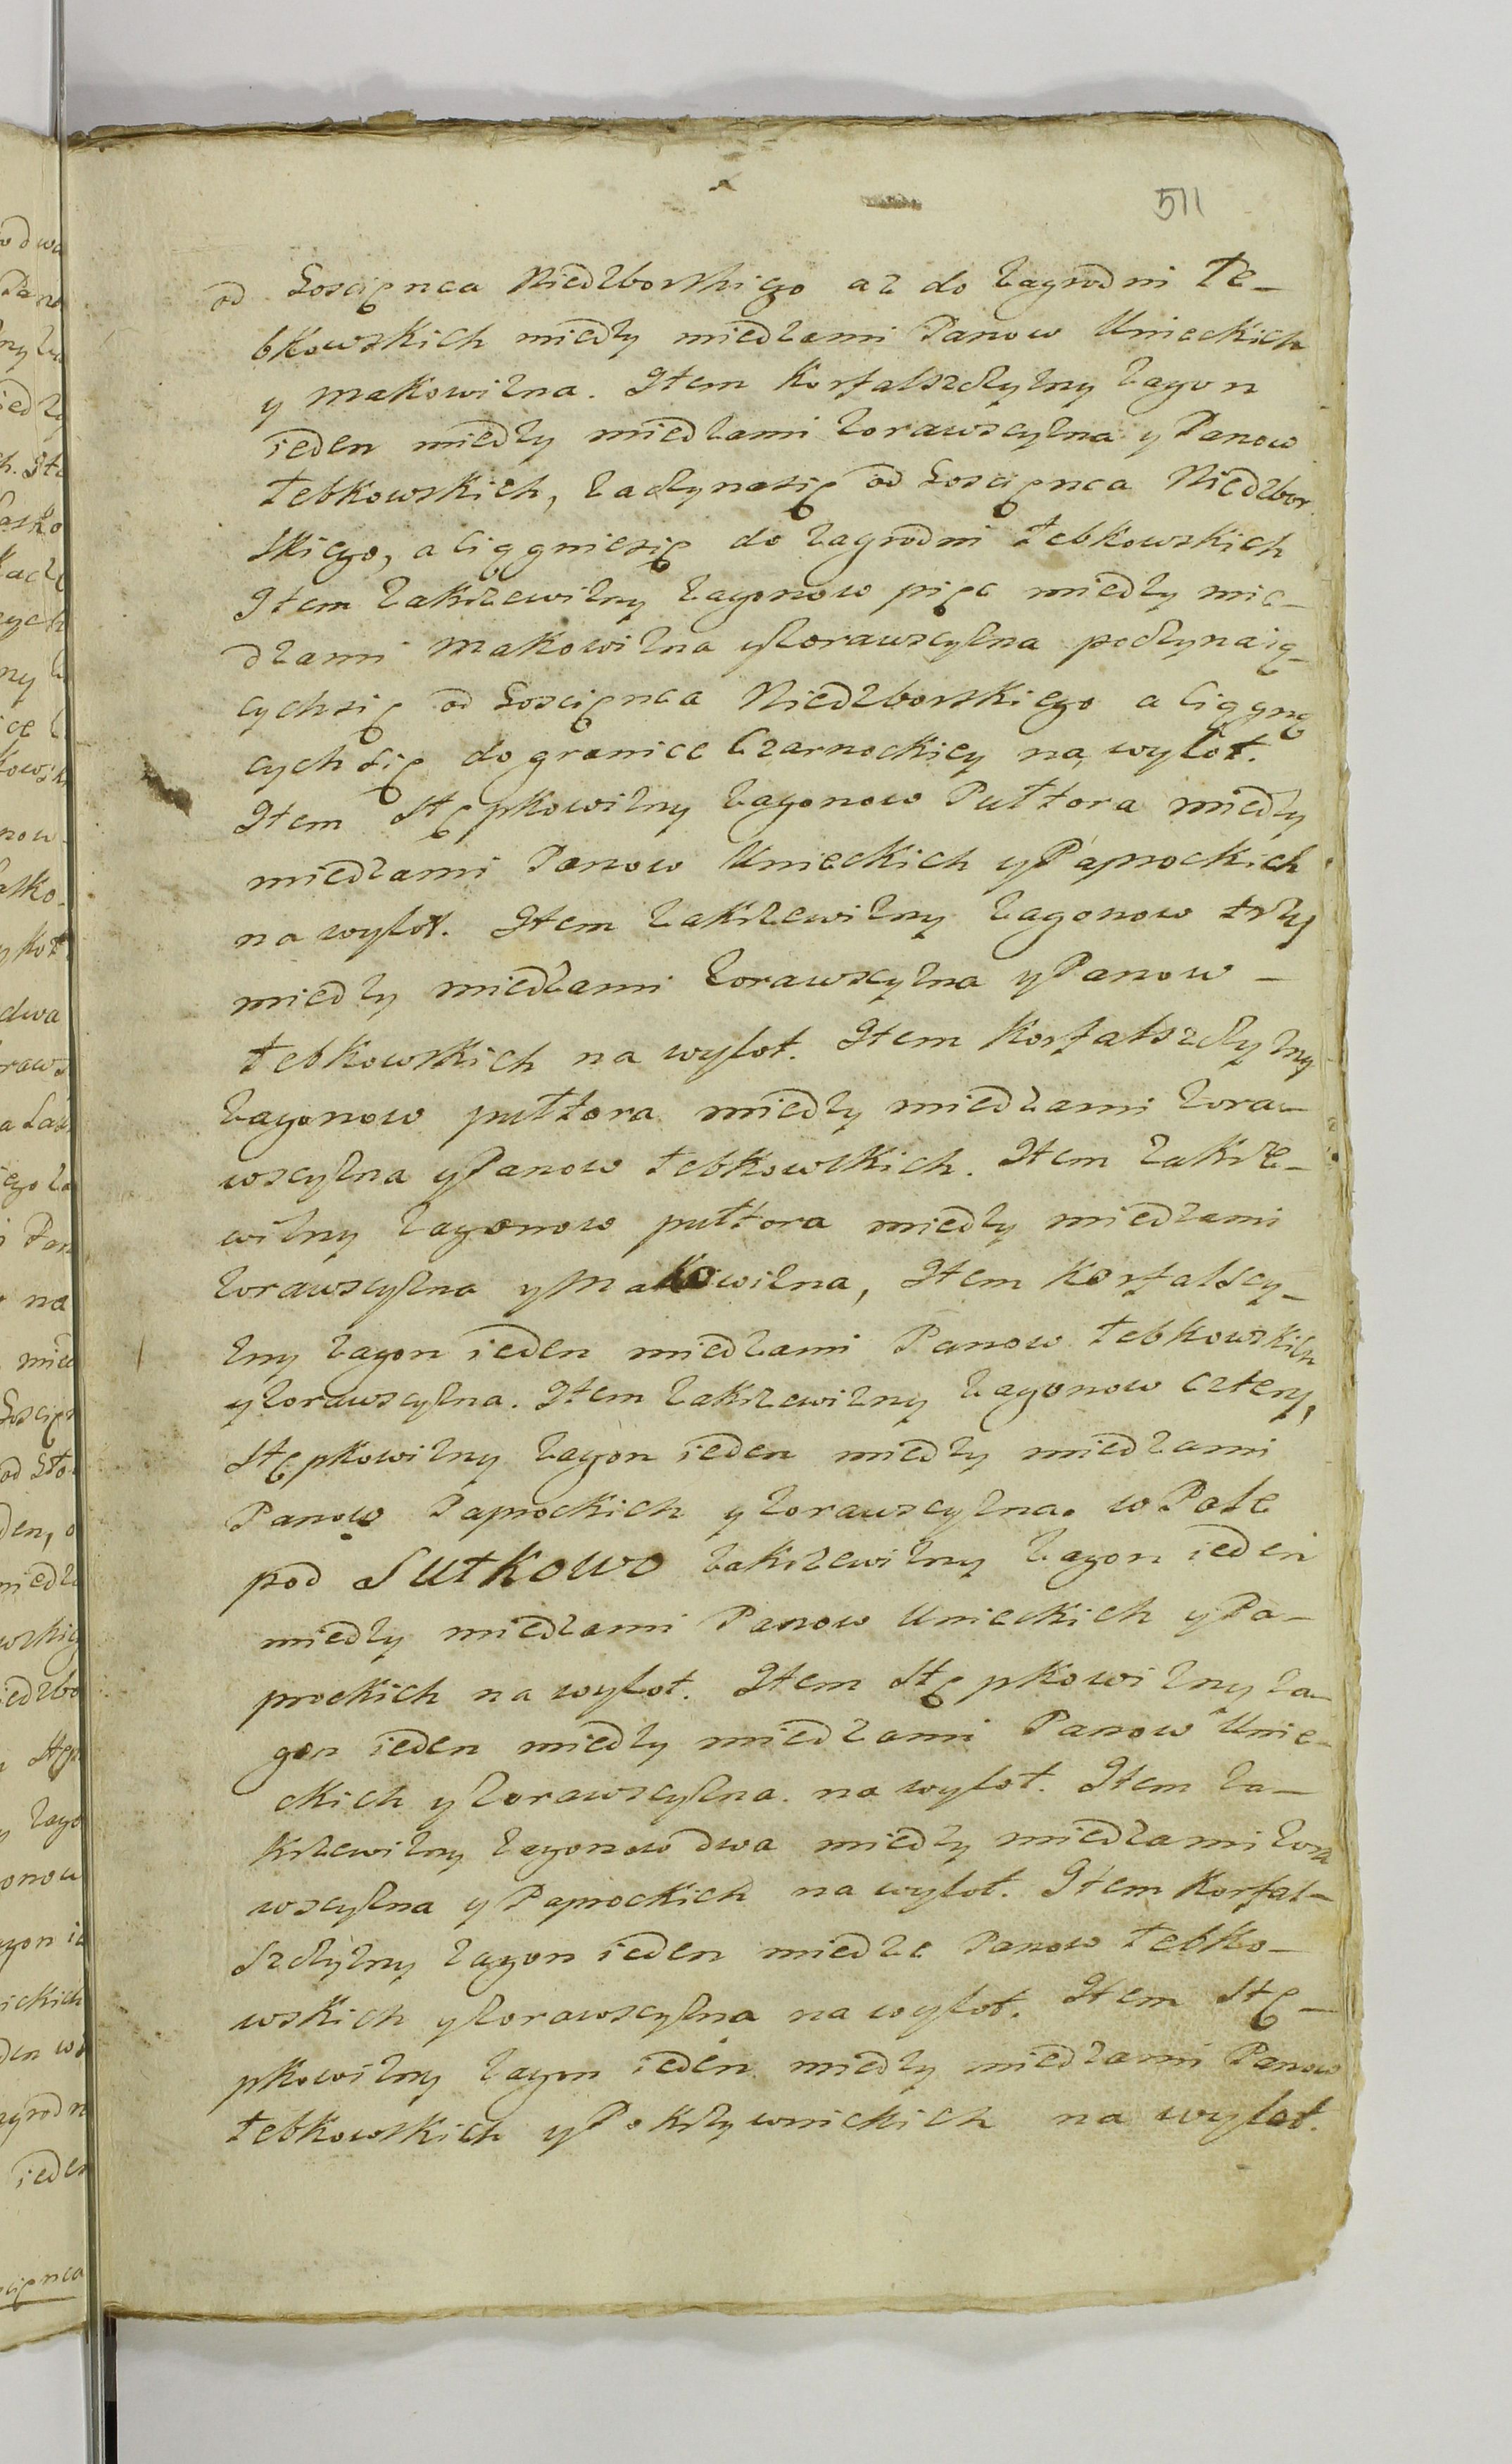 511
od Goscięnca Niedzborskiego az do Zagrodni Łe-
bkowskich miedzy miedzami Panow Unieckich
y Makowizna. Item Korfalszczyzny Zagon
ieden miedzy miedzami Zorawscyzna y Panow
Łebkowskich, Zaczynasię od Goscięnca Niedzbor
skiego, a Ciągniesię do Zagrodni Łebkowskich
Item Zakrzewizny Zagonow pięc miedzy mie-
dzami Makowizna y Zorawscyzna poczynaią-
cychsię od Goscięnca Niedzborskiego a Ciągną
cychsię do granice Czarnockiey na wylot.
Item Stępkowizny Zagonow Pułtora miedzy
miedzami Panow Unieckich y Paprockich
na wylot. Item Zakrzewizny Zagonow trzy
miedzy miedzami Zorawscyzna y Panow -
Łebkowskich na wylot. Item Korfalszczyzny
Zagonow pułtora miedzy miedzami Zora-
wscyzna y Panow Łebkowskich. Item Zakrze-
wizny Zagonow pułtora miedzy miedzami
Zorawscyzna y Makowizna, Item Korfalscy-
zny Zagon ieden miedzami Panow Łebkowskich
y Zorawscyzna. Item Zakrzewizny Zagonow cztery,
Stępkowizny Zagon ieden miedzy miedzami
Panow Paprockich y Zorawscyzna. w Pole
pod Sułkowo Zakrzewizny Zagon ieden
miedzy miedzami Panow Unieckich y Pa-
prockich na wylot. Item Stępkowizny Za-
gon ieden miedzy miedzami Panow Unie-
ckich y Zorawscyzna. na wylot. Item Za-
krzewizny Zagonow dwa miedzy miedzami Zora
wscyzna y Paprockich na wylot. Item Korfal-
szczyzny Zagon ieden miedze Panow Łebko-
wskich y Zorawscyzna na wylot. Item Stę-
pkowizny Zagon ieden miedzy miedzami Panow
Łebkowskich y Pokrzywnickich na wylot.